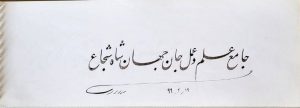 جامع علم و عمل جان جهان شاه شجاع
۹۶/۲/۱۹